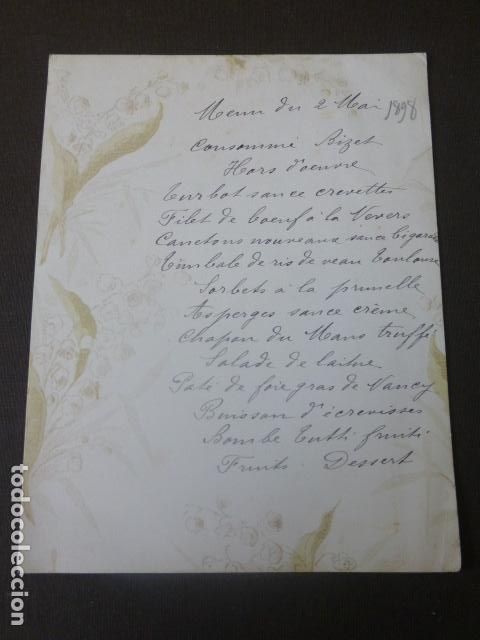 Menu du 2 Mai 1898
Consommé Bizet
Hors d'oeuvre
Turbot sauce crevettes
Filet de boeuf à la Nevers
Canetons nouveaux sauce bigarade
Timbale de ris de veau Toulouse
Sorbets à la prunelle
Asperges sauce crème
Chapon du Mans truffé
Salade de laitue
Paté de foie gras de Nancy
Buisson d'écrevisses
Bombe Tutti fruiti
Fruits. Dessert
todocoleccion.net